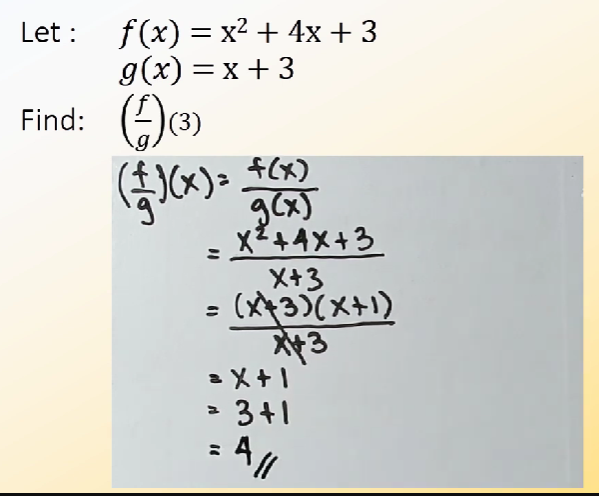 Let : f(x) = x² + 4x + 3
g(x) = x + 3
Find: (f/g)(3)
(f/g)(x) = f(x)/g(x)
= x²+4x+3/x+3
= (x+3)(x+1)/x+3
= x+1
= 3+1
= 4//